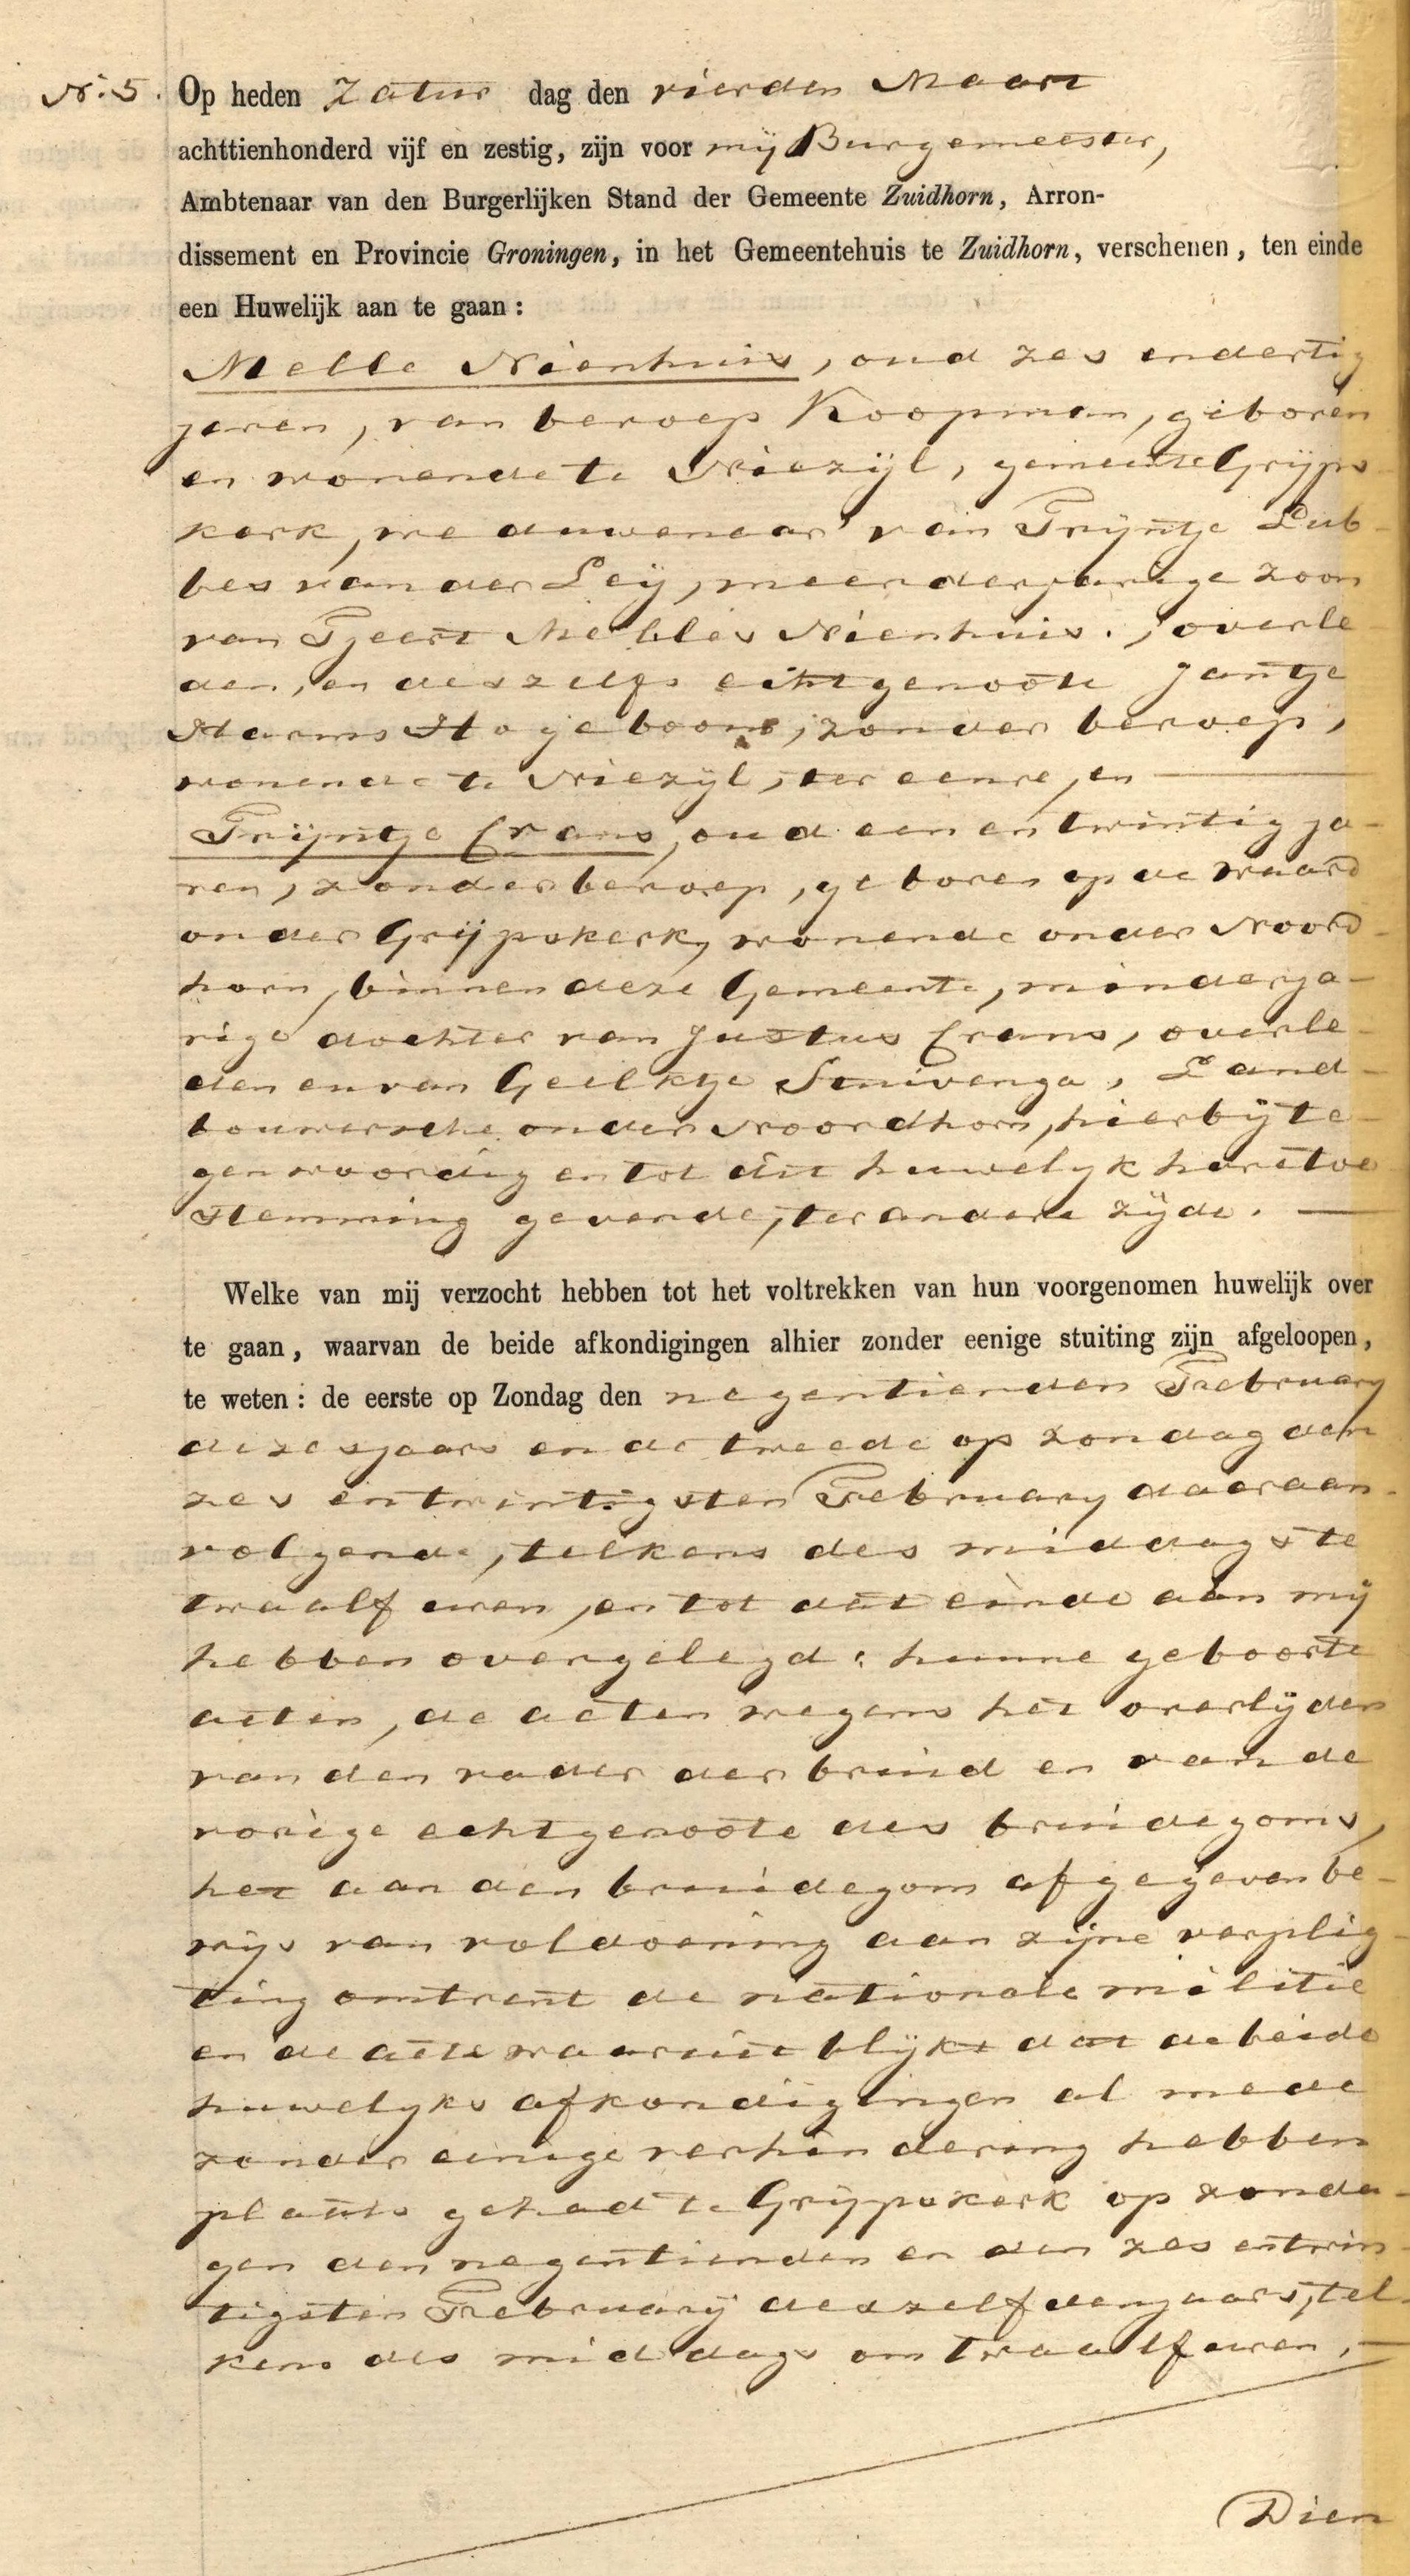 N.5. Op heden Zatur dag den vierden Maart
achttienhonderd vijf en zestig, zijn voor mij Burgemeester,
Ambtenaar van den Burgerlijken Stand der Gemeente Zuidhorn, Arron-
dissement en Provincie Groningen, in het Gemeentehuis te Zuidhorn, verschenen, ten einde
een Huwelijk aan te gaan:
Melle Nienhuis, oud zes en dertig
jaren, van beroep Koopman, geboren
en wonende te Niezijl, gemeente Grijps-
kerk, weduwenaar van Trijntje Lub-
bes van der Leij, meerderjarige zoon
van Tjeert Melles Nienhuis, overle-
den, en deszelfs echtgenoote Jantje
Harms Hogeboom, zonder beroep,
wonende te Niezijl, ter eenre, en
Trijntje Crans, oud een en twintig ja-
ren, zonder beroep, geboren op de Waard
onder Grijpskerk, wonende onder Noord-
horn, binnen deze Gemeente, minderja-
rige dochter van Justus Crans, overle-
den en van Geelktje Sennivenga, Land-
bouwersche onder Noordhorn, hierbij te-
genwoordig en tot dit huwelijk hare toe-
stemming gevende, ter andere zijde.
Welke van mij verzocht hebben tot het voltrekken van hun voorgenomen huwelijk over
te gaan, waarvan de beide afkondigingen alhier zonder eenige stuiting zijn afgeloopen,
te weten: de eerste op Zondag den negentienden February
dezes jaars en de tweede op zondag den
zes en twintigsten February daaraan-
volgende, telkens des middags te
twaalf uren, en tot dat einde aan mij
hebben overgelegd: hunne geboorte
acten, de acten wegens het overlijden
van den vader der bruid en van de
vorige echtgenoote des bruidegoms,
het aan den bruidegom afgegeven be-
wijs van voldoening aan zijne verplig-
ting omtrent de nationale militie
en de acte waaruit blijkt dat de beide
huwelyks afkondigingen al mede
zonder eenige verhindering hebben
plaats gehad te Grijpskerk op zonda-
gen den negentienden en den zes en twin-
tigsten February deszelfden jaars, tel-
kens des middags om twaalf uren.
Dien